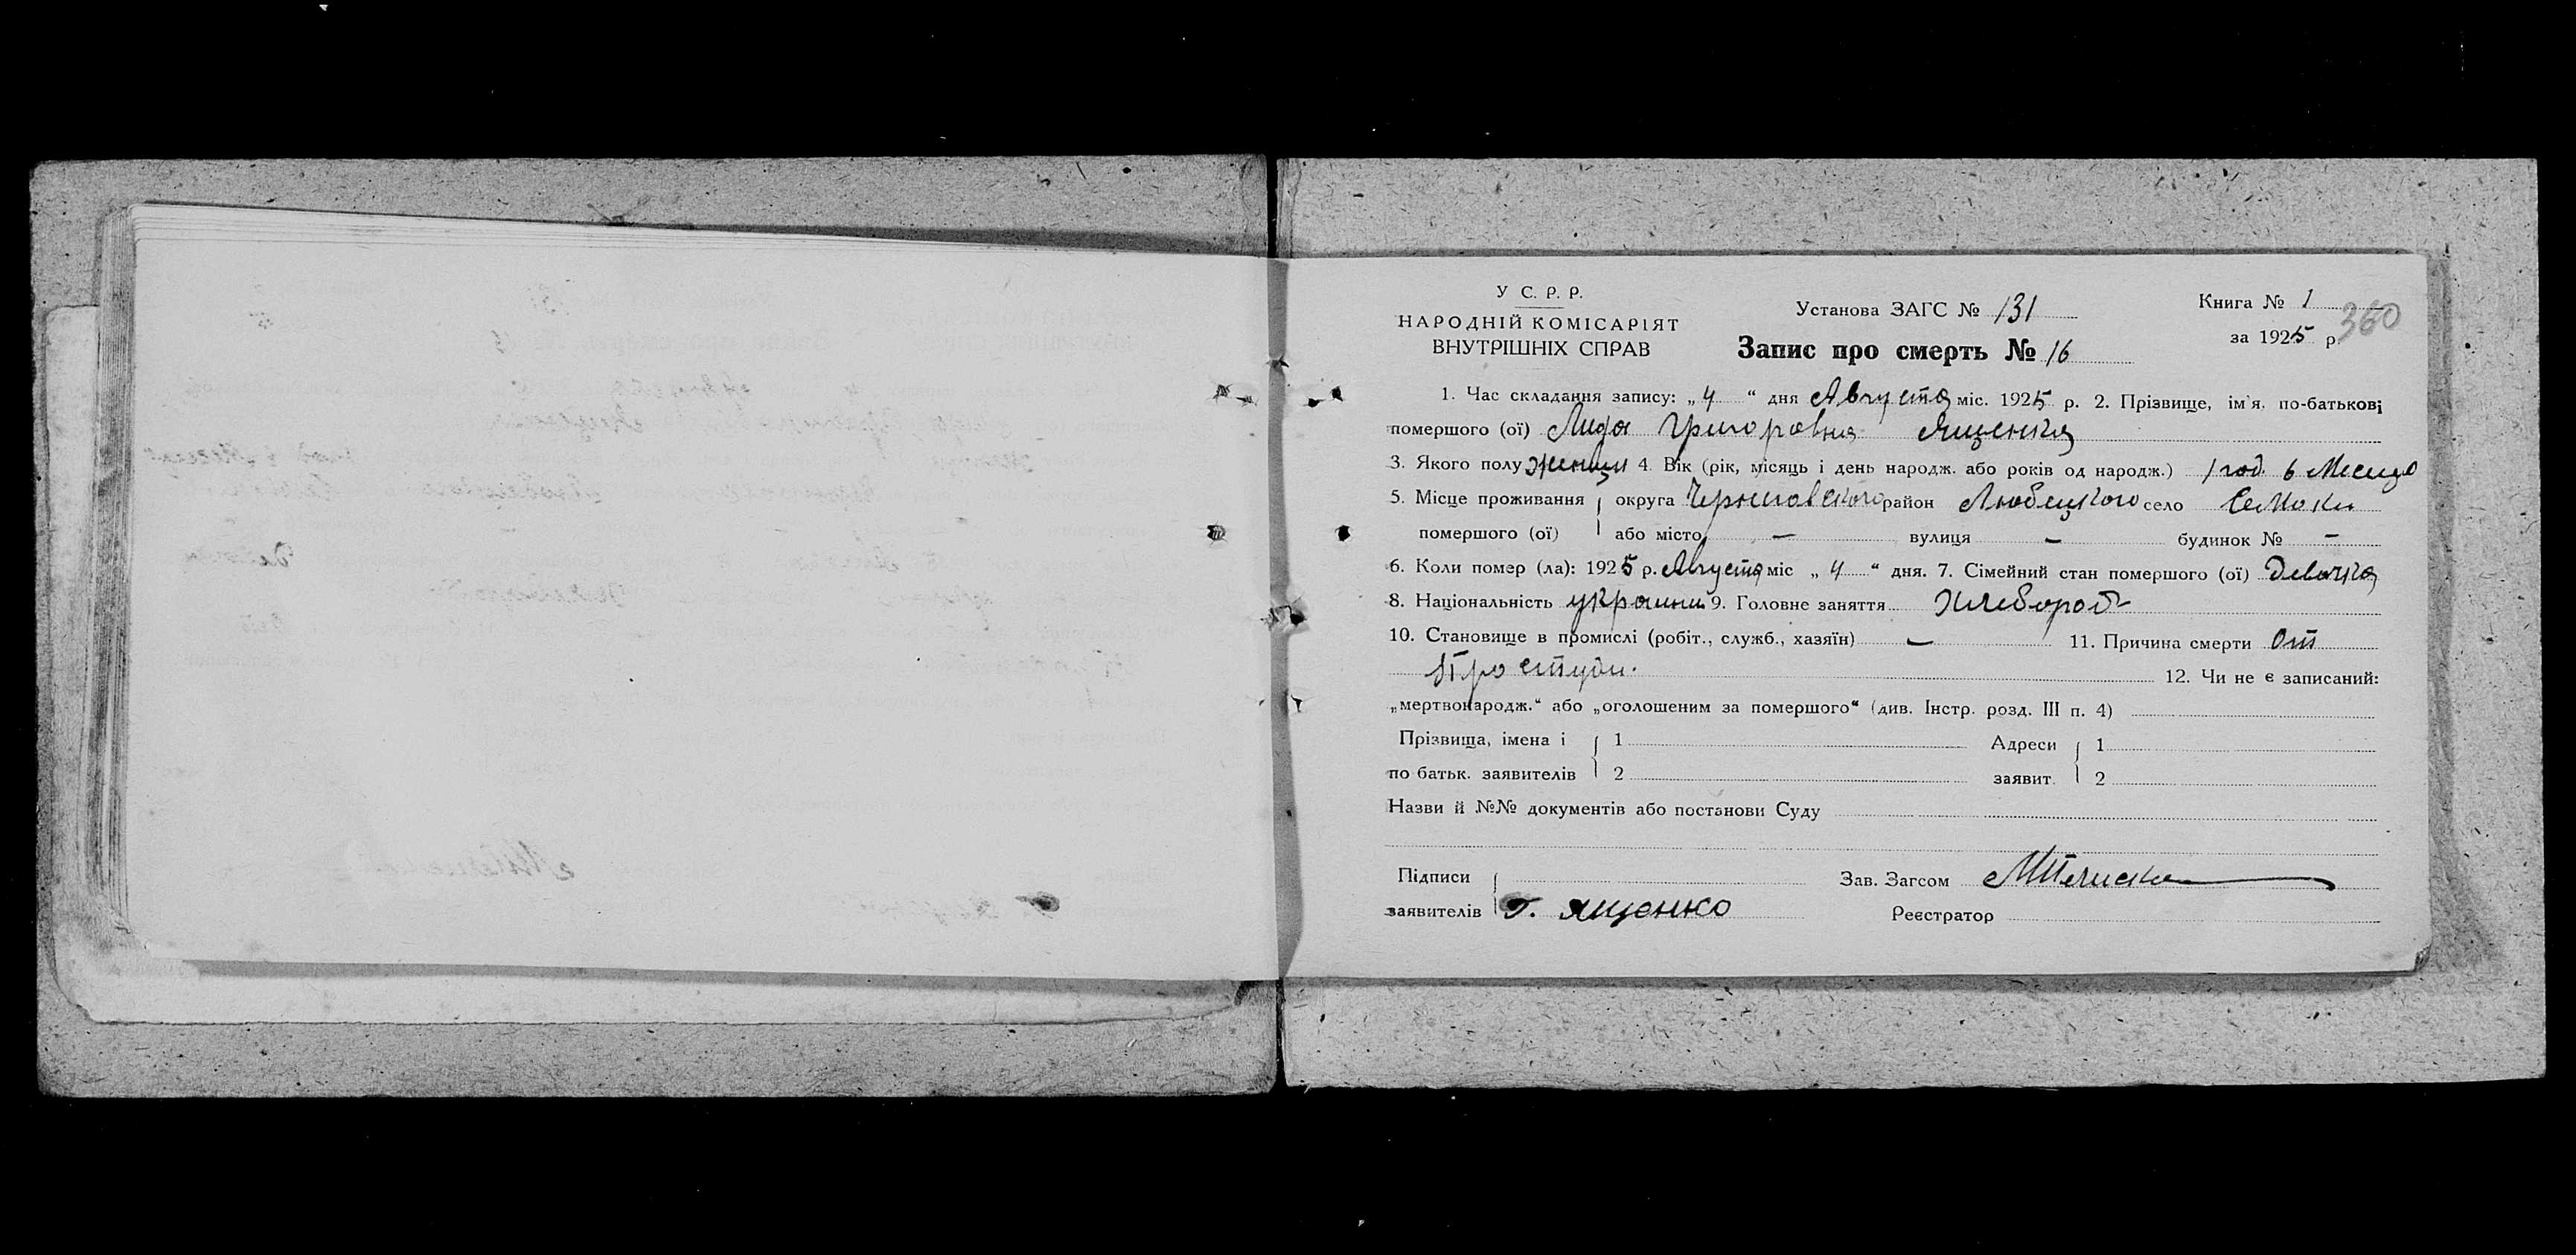 У С. Р. Р.
НАРОДНІЙ КОМІСАРІЯТ
ВНУТРІШНІХ СПРАВ
Установа ЗАГС № 131
Запис про смерть № 16
Книга № 1
за 1925 р.
360
1. Час складання запису: „4“ дня Августа міс. 1925 р. 2. Прізвище, ім'я, по-батькові
помершого (ої) Лида Григоровна Ященко
3. Якого полу женщ 4. Вік (рік, місяць і день народж. або років од народж.) 1 год. 6 Месяцо
5. Місце проживання округа Черниговского район Любецкого село
помершого (ої) або місто — вулиця — будинок № —
6. Коли помер (ла): 1925 р. Августа міс „4“ дня. 7. Сімейний стан помершого (ої) Девочка
8. Національність украинн 9. Головне заняття Хлебороб
10. Становище в промислі (робіт., служб., хазяїн) — 11. Причина смерти От
Простуди. 12. Чи не є записаний:
„мертвонародж.“ або „оголошеним за помершого“ (див. Інстр. розд. III п. 4)
Прізвища, імена і 1 Адреси 1
по батьк. заявителів 2 заявит. 2
Назви й №№ документів або постанови Суду
Підписи Зав. Загсом
заявителів Г. Ященко Реєстратор